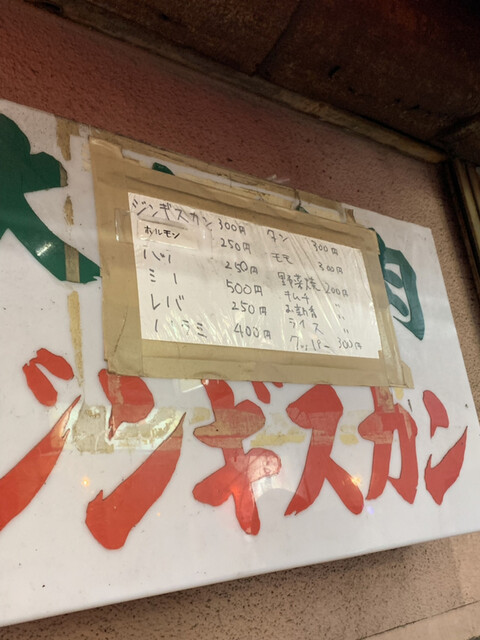 ジンギスカン 300円
ホルモン 250円
ハツ 250円
ミノ 500円
レバ 250円
ハラミ 400円
タン 300円
モモ 300円
野菜焼 200円
キムチ
お新香 〃
ライス 〃
クッパー 300円
ジンギスカン